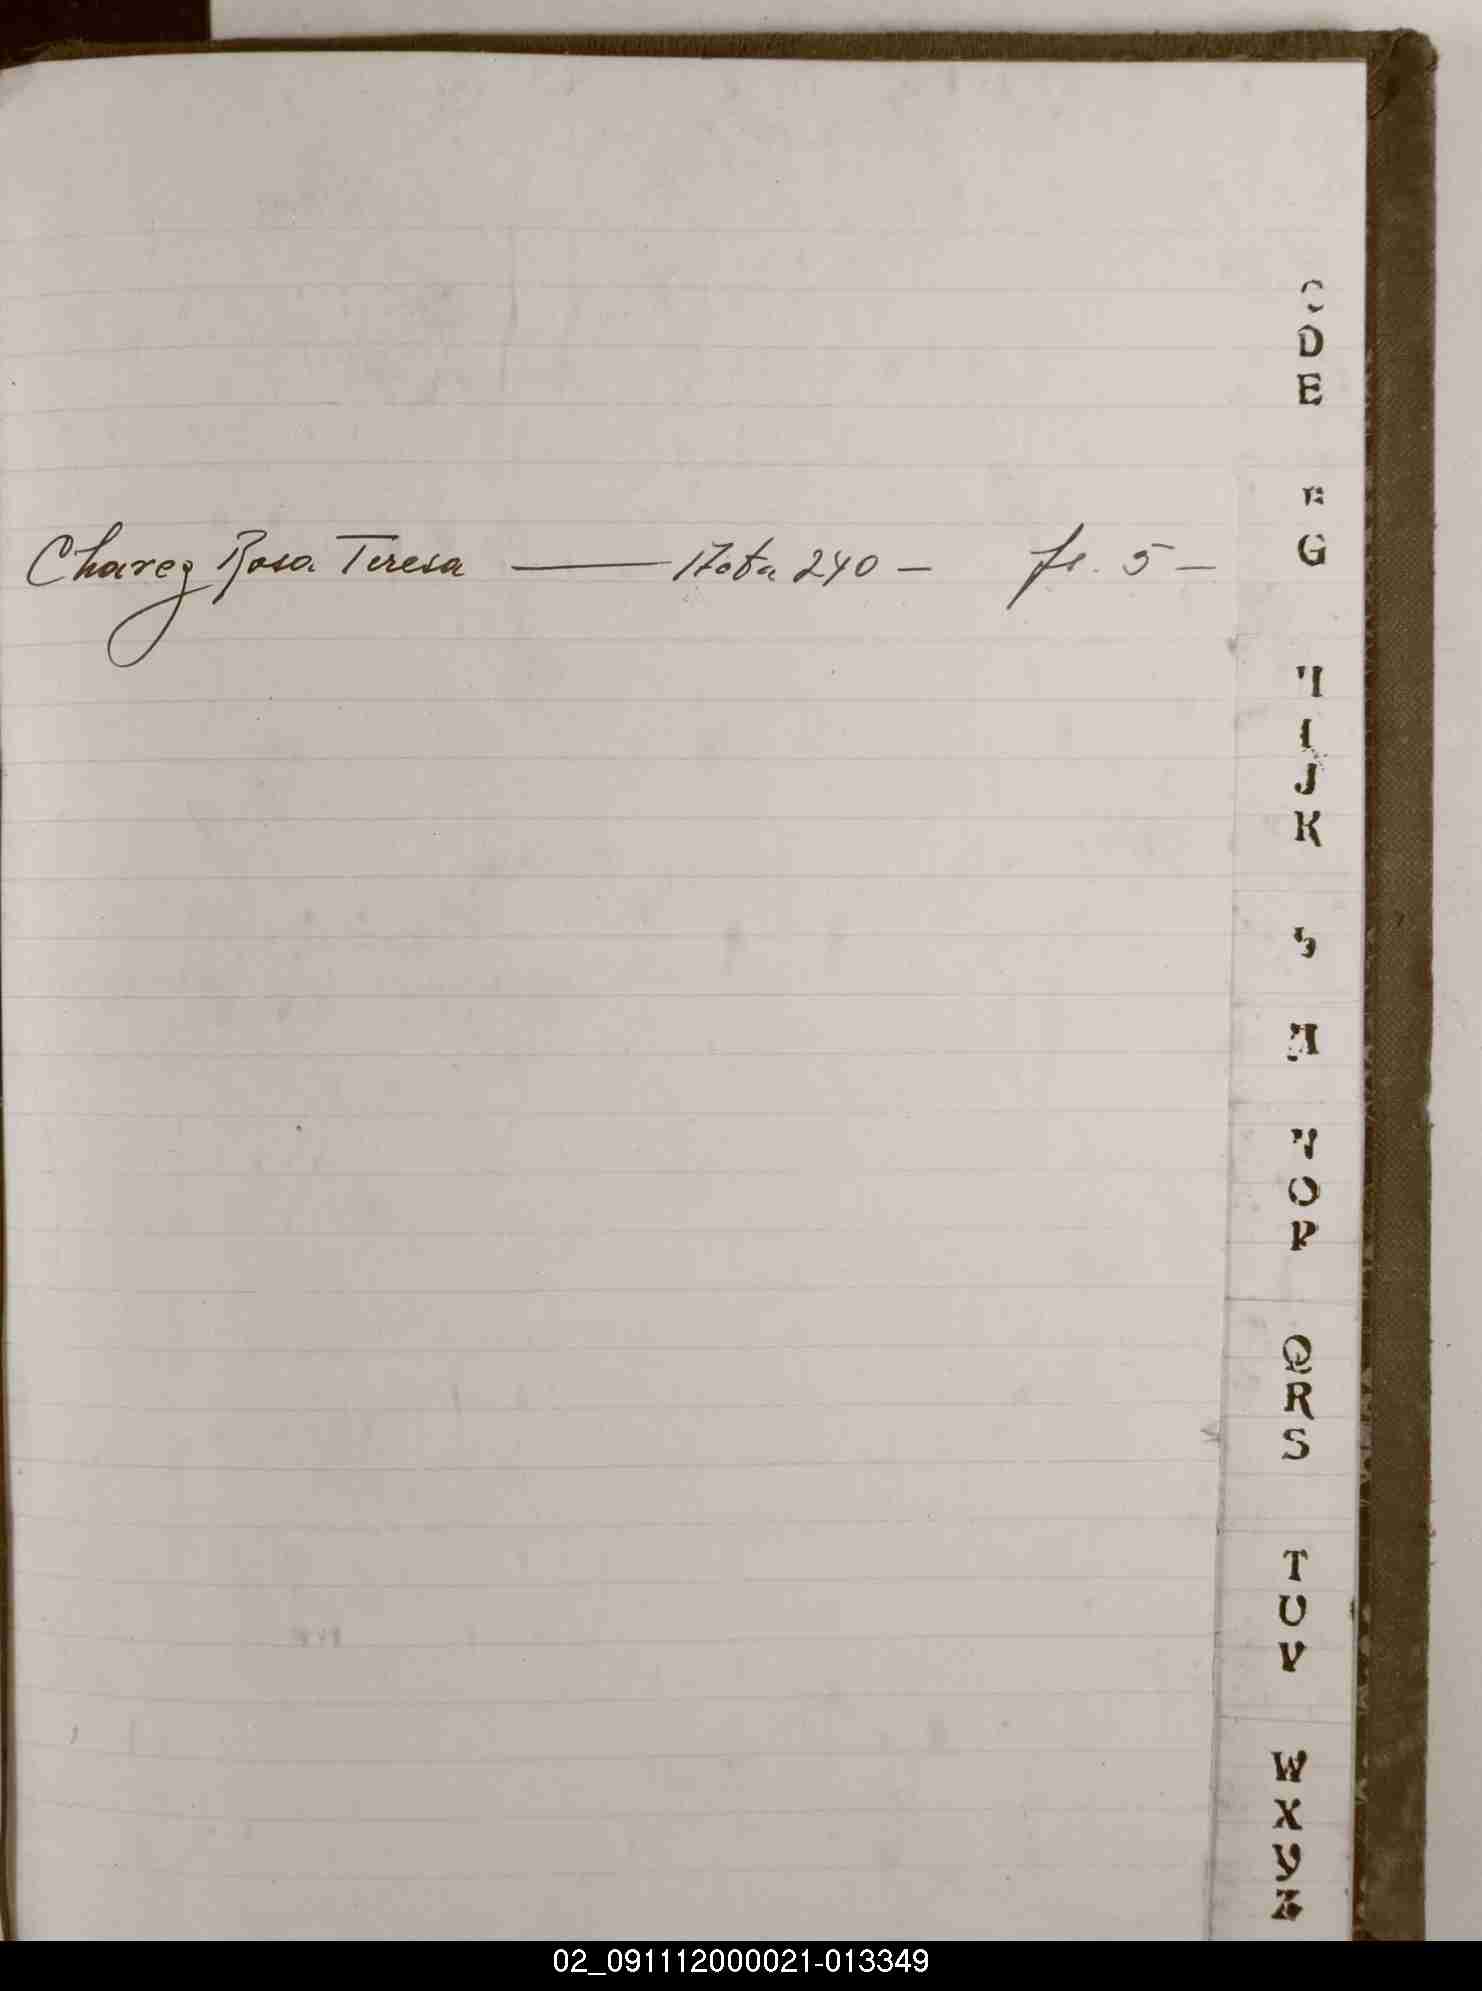 Chavez Rosa Teresa — Nota 240 — fs. 5 —
C
D
E
G
I
J
K
M
N
O
P
Q
R
S
T
U
V
W
X
Y
Z
02_091112000021-013349